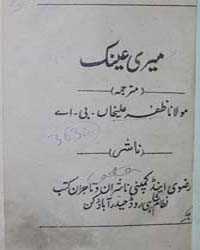 میری عینک
(مترجمہ)
مولانا ظفر علیخاں - بی - اے
(ناشر)
رضوی اینڈ کمپنی ناشران و تاجران کتب
نظام شاہی روڈ حیدرآباد دکن